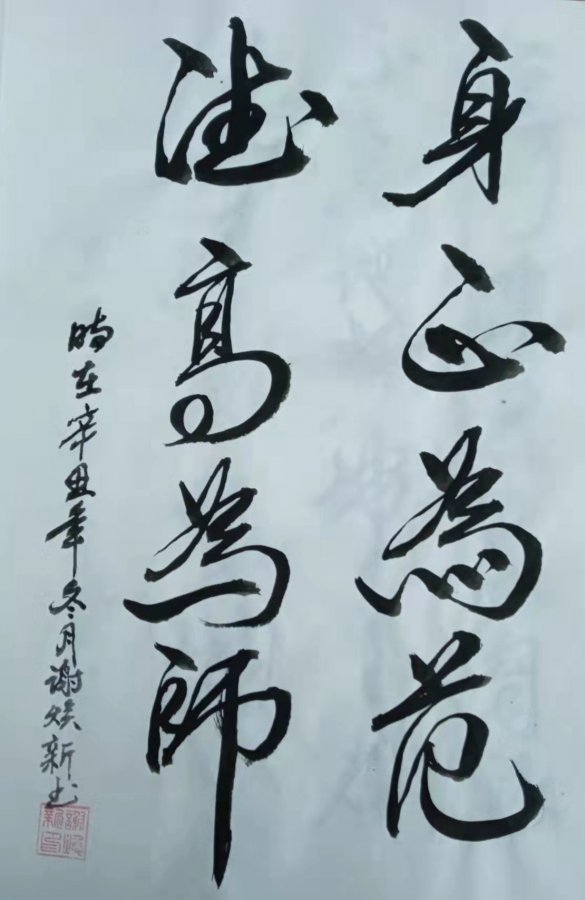 身正為范
德高為師
時在辛丑年冬月謝焕新书